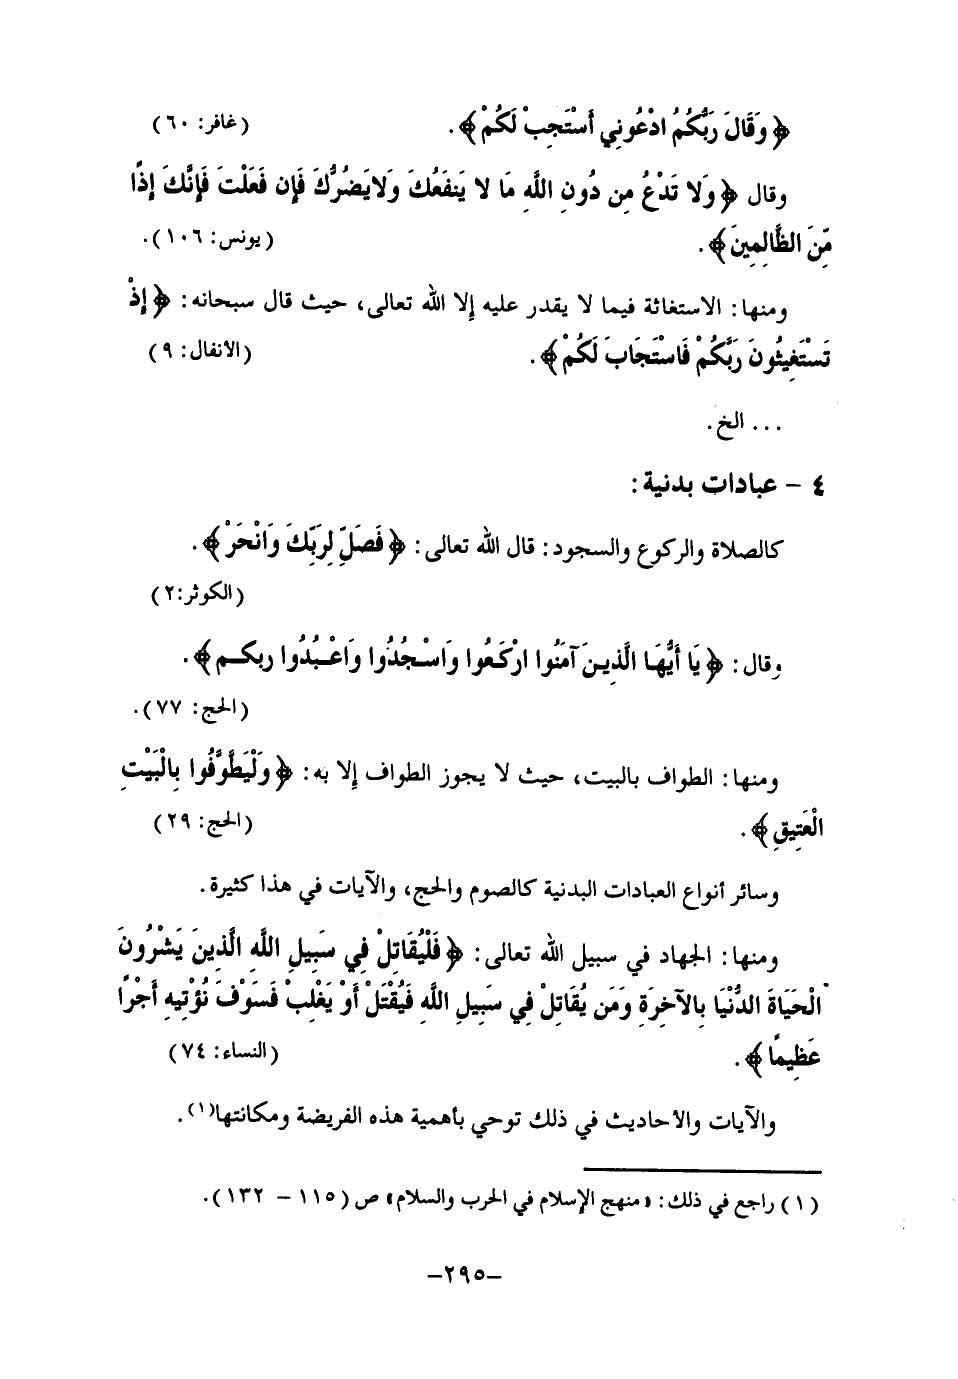 ﴿ وَقَالَ رَبُّكُمُ ادْعُونِي أَسْتَجِبْ لَكُمْ﴾. (غافر: ٦٠)
وقال ﴿ وَلَا تَدْعُ مِن دُونِ اللَّهِ مَا لا يَنفَعُكَ وَلايَضُرُّكَ فَإِن فَعَلْتَ فَإِنَّكَ إِذًا
مِّنَ الظَّالِمِينَ﴾. (يونس: ١٠٦).
ومنها: الاستغاثة فيما لا يقدر عليه إلا الله تعالى، حيث قال سبحانه: ﴿ إِذْ
تَسْتَغِيثُونَ رَبَّكُمْ فَاسْتَجَابَ لَكُمْ﴾. (الأنفال: ٩)
... الخ.
٤ - عبادات بدنية:
كالصلاة والركوع والسجود: قال الله تعالى: ﴿ فَصَلِّ لِرَبِّكَ وَانْحَرْ﴾.
(الكوثر:٢)
وقال: ﴿ يَا أَيُّهَا الَّذِينَ آمَنُوا ارْكَعُوا وَاسْجُدُوا وَاعْبُدُوا ربكم﴾.
(الحج: ٧٧).
ومنها: الطواف بالبيت، حيث لا يجوز الطواف إلا به: ﴿ وَلْيَطَّوَّفُوا بِالْبَيْتِ
الْعَتِيقِ﴾. (الحج: ٢٩)
وسائر أنواع العبادات البدنية كالصوم والحج، والآيات في هذا كثيرة.
ومنها: الجهاد في سبيل الله تعالى: ﴿ فَلْيُقَاتِلْ فِي سَبِيلِ اللَّهِ الَّذِينَ يَشْرُونَ
الْحَيَاةَ الدُّنْيَا بِالآخِرَةِ وَمَن يُقَاتِلْ فِي سَبِيلِ اللَّهِ فَيُقْتَلْ أَوْ يَغْلِبْ فَسَوْفَ نُؤْتِيهِ أَجْرًا
عَظِيمًا﴾. (النساء: ٧٤)
والآيات والأحاديث في ذلك توحي بأهمية هذه الفريضة ومكانتها(١).
(١) راجع في ذلك: «منهج الإسلام في الحرب والسلام» ص (١١٥ - ١٣٢).
-٢٩٥-